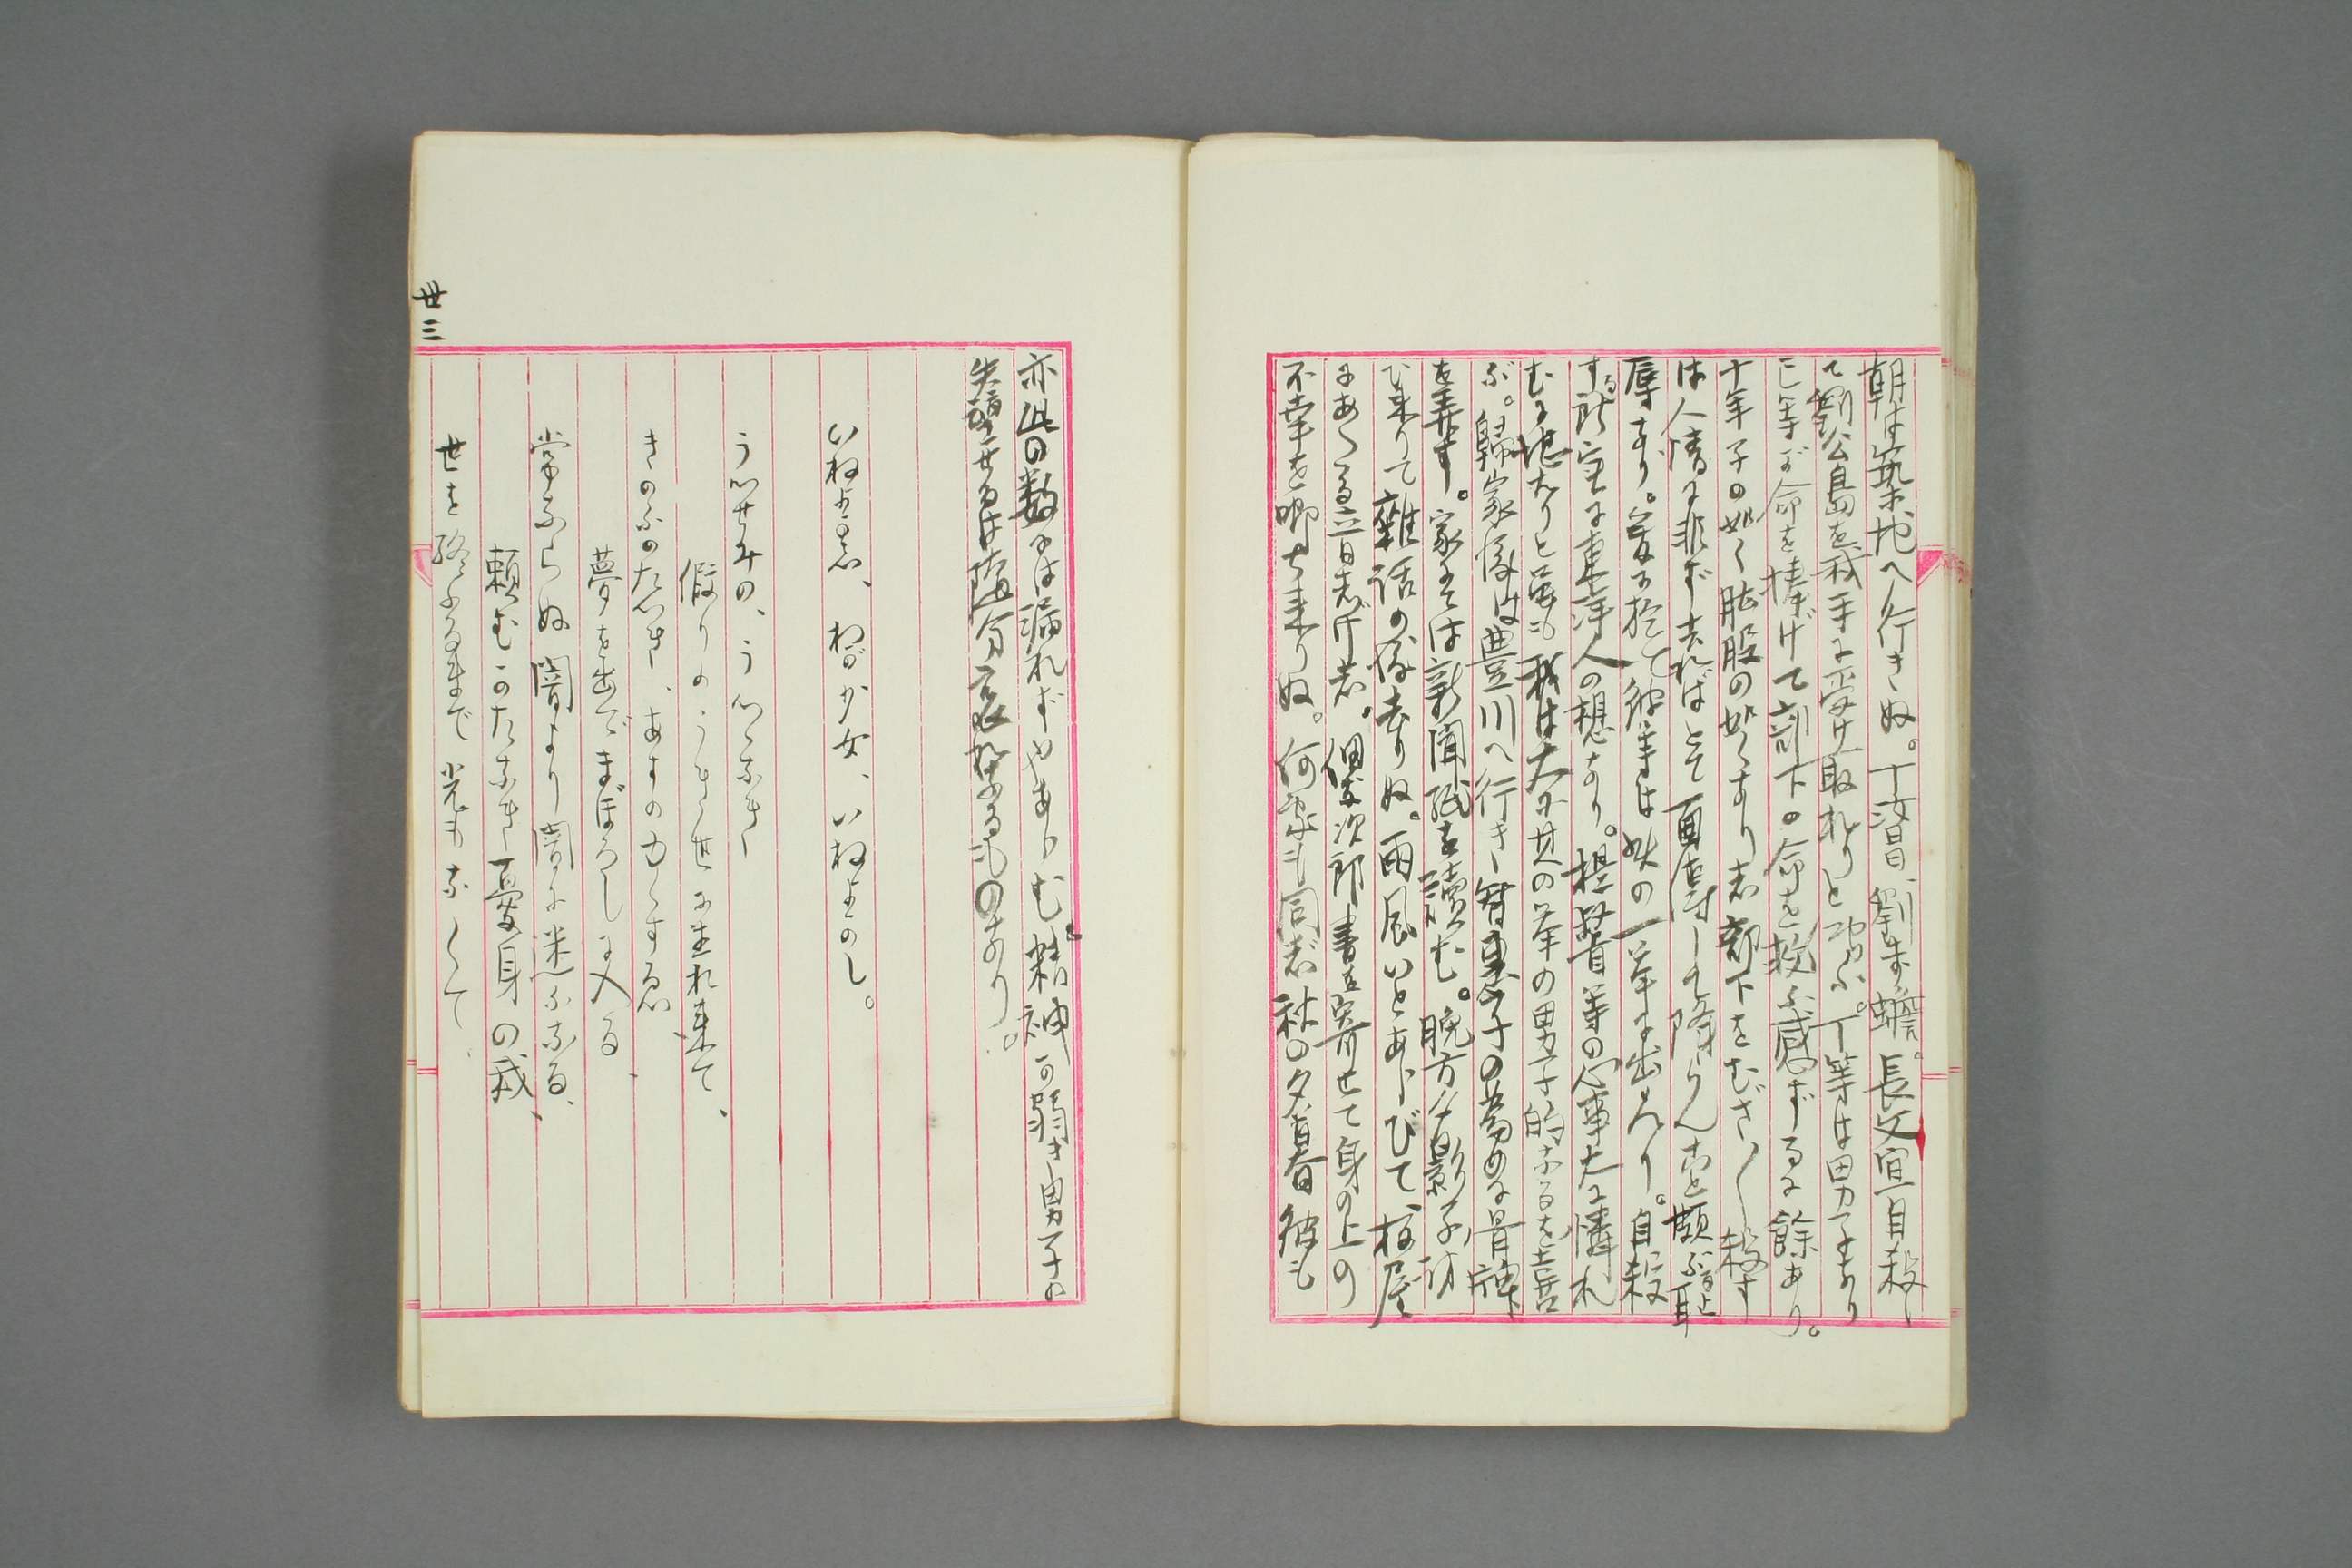 朝は築地へ行きぬ。丁汝昌、劉歩蟾。長文宣自殺し
て劉公島を我手に受け取れりと功ふ。丁等は男子なり
己等が命を捧げて部下の命を救ふ感ずるに餘あり。
十年子の如く肱股の如くなりし部下をむざ〱殺す
は人情に非ず去ればとて面縛して降らんこと頗ぶる恥
辱なり。爰に於て彼等は此の一挙に出たり。自殺
する所実に東洋人の想なり。提督等の心事大に憐れ
むに堪たりと雖も我は大に其の挙の男子的なるを喜
ぶ。歸家後は豊川へ行き智恵子の為めに骨牌
を弄す。家にては新聞紙を讀む。晩方 影子訪
ひ来りて雜話の後去りぬ。雨風いとあらびて夜屋
にあくる六日しげし。 次郎書を寄せて身の上の
不幸を卿ち来りぬ。何家も同じ秋の夕暮彼も
亦此の数には漏れずやあらむ。精神の弱き男子の
失望せるは随分哀むべきものなり。
いねよし、わが少女、いねよかし。
うつせみの、うつゝなき
假りのうき世に生れ来て、
きのふのたへき、あすのむくする
夢を出でまぼろしに入る
常ならぬ闇より闇に迷ふなる、
頼むかたなき憂身の我、
世を終ふるまで光もなくて
丗三